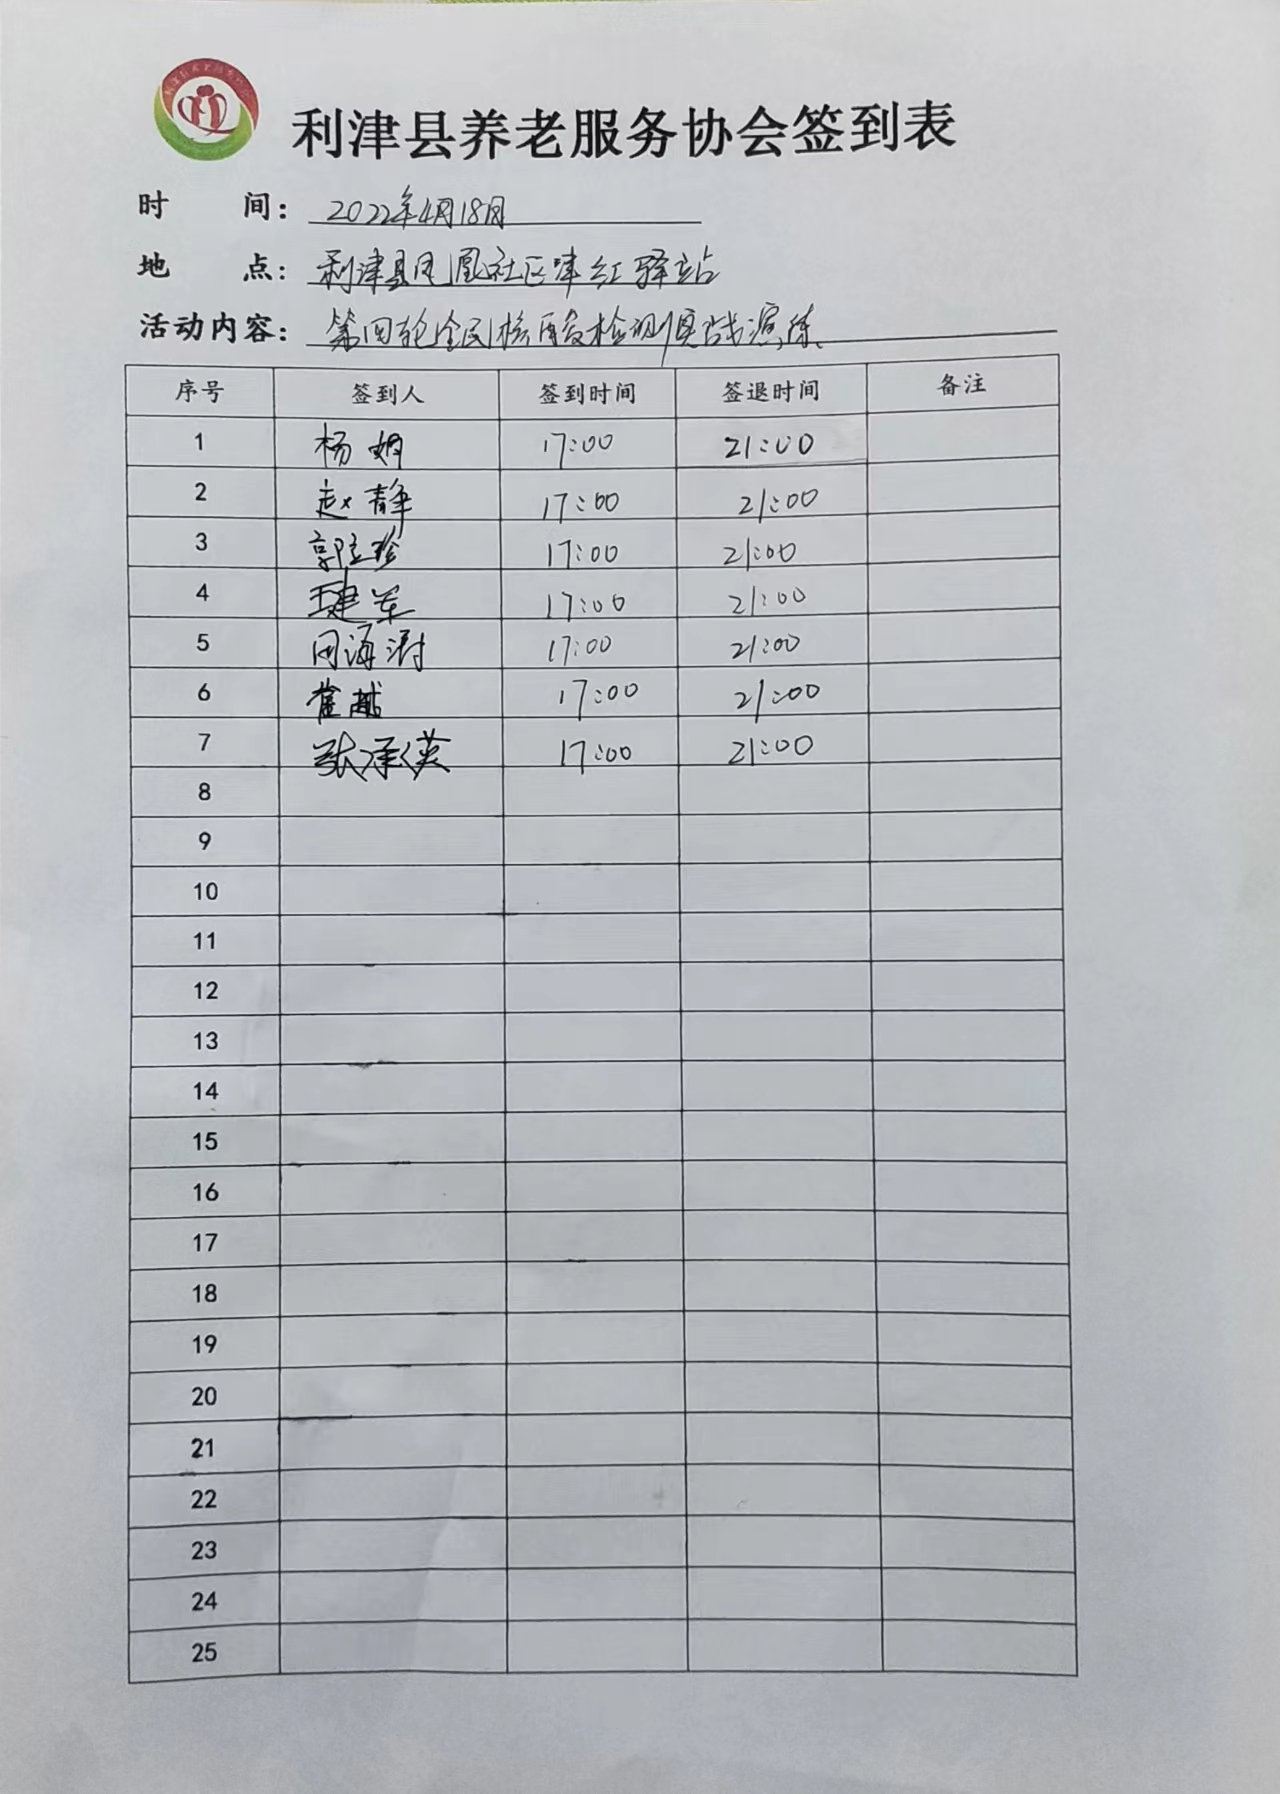 利津县养老服务协会签到表
时 间: 2022年4月18日
地 点: 利津县凤凰社区津红驿站
活动内容: 第四轮全民核酸检测实战演练.
序号 签到人 签到时间 签退时间 备注
1 杨娟 17:00 21:00
2 赵静 17:00 21:00
3 郭立珍 17:00 21:00
4 王建军 17:00 21:00
5 闫海澍 17:00 21:00
6 崔越 17:00 21:00
7 张承英 17:00 21:00
8
9
10
11
12
13
14
15
16
17
18
19
20
21
22
23
24
25